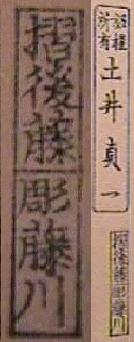 版権
所有
土井貞一
摺後藤
彫藤川
摺後藤彫藤川